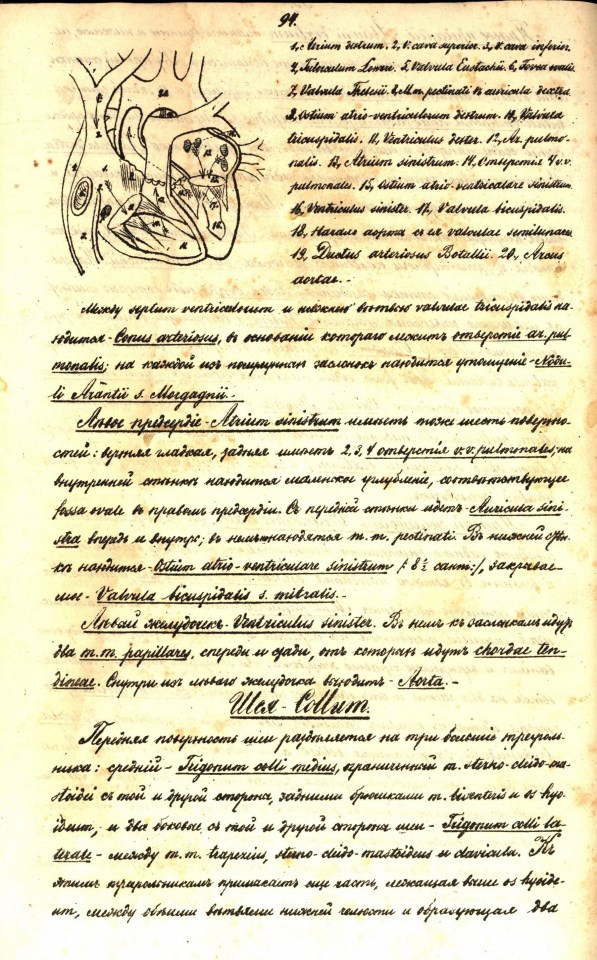 94.
1, Atrium dextrum. 2, v. cava superior. 3, v. cava inferior.
4, Tuberculum Loweri. 5, Valvula Eustachii. 6, Fovea ovalis.
7, Valvula Thebesii. 8, Mm. pectinati въ auricula dextra.
9, Ostium atrio-ventriculorum dextrum. 10, Valvula
tricuspidalis. 11, Ventriculus dexter. 12, Ar. pulmo-
nalis. 13, Atrium sinistrum. 14, Отверстiя 4 v.v.
pulmonales. 15, Ostium atrio-ventriculare sinistrum.
16, Ventriculus sinister. 17, Valvula bicuspidalis.
18, Начало аорты съ ея valvulae semilunares.
19, Ductus arteriosus Botallii. 20, Arcus
aortae.-
Между septum ventriculorum и нижнею вѣтвью valvulae tricuspidalis на-
ходится - Conus arteriosus, въ основанiи котораго лежитъ отверстiе ar. pul-
monalis; на каждой изъ полулунныхъ заслонокъ находится утолщенiе - Nodu-
li Arantii s. Morgagnii.-
Лѣвое предсердiе - Atrium sinistrum имѣетъ тоже шесть поверхно-
стей: верхняя гладкая, задняя имѣетъ 2, 3, 4 отверстiя v.v. pulmonales; на
внутренней стѣнкѣ находится маленькое углубленiе, соотвѣтствующее
fossa ovale въ правомъ предсердiи. Съ передней стѣнки идетъ - Auricula sini-
stra впередъ и внутрь; въ немъ находятся m. m. pectinati. Въ нижней стѣн-
кѣ находится - Ostium atrio-ventriculare sinistrum /: 8 2 сант:/, закрывае-
мое - Valvula bicuspidalis s. mitralis.-
Лѣвый желудочекъ - Ventriculus sinister. Въ немъ къ заслонкамъ идутъ
два m. m. papillares, спереди и сзади, отъ которыхъ идутъ chordae ten-
dineae. Снутри изъ лѣваго желудочка выходитъ - Aorta.-
Шея - Collum.
Передняя поверхность шеи раздѣляется на три большiе треуголь-
ника: среднiй - Trigonum colli medius, ограниченный m. sterno-cleido-ma-
stoidei съ той и другой стороны, задними брюшками m. biventeris и os hyo-
ideum, и два боковые, съ той и другой стороны шеи - Trigonum colli la-
terale - между m. m. trapezius, sterno-cleido-mastoideus и clavicula. Къ
этимъ треугольникамъ примыкаетъ еще часть, лежащая выше os hyoide-
um, между обѣими вѣтвями нижней челюсти и образующая два